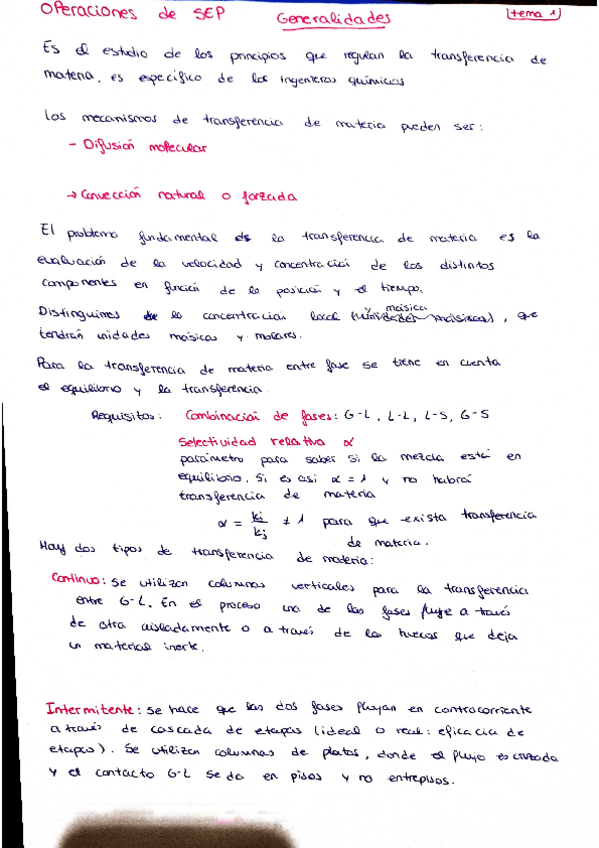 Operaciones de SEP Generalidades tema 1
Es el estudio de los principios que regulan la transferencia de
materia, es específico de los ingenieros químicos
Los mecanismos de transferencia de materia pueden ser:
- Difusión molecular
→ Convección natural o forzada
El problema fundamental de la transferencia de materia es la
evaluación de la velocidad y concentración de los distintos
componentes en función de la posición y el tiempo.
Distinguimos la concentración local y másica, que
tendrán unidades másicas y molares.
Para la transferencia de materia entre fase se tiene en cuenta
el equilibrio y la transferencia.
Requisitos: Combinación de fases: G-L, L-L, L-S, G-S
Selectividad relativa α
parámetro para saber si la mezcla está en
equilibrio. Si es así α = 1 y no habrá
transferencia de materia
α = ki/kj ≠ 1 para que exista transferencia
de materia.
Hay dos tipos de transferencia de materia:
Continuo: Se utilizan columnas verticales para la transferencia
entre G-L. En el proceso una de las fases fluye a través
de otra aisladamente o a través de los huecos que deja
un material inerte.
Intermitente: se hace que las dos fases fluyan en contracorriente
a través de cascada de etapas (ideal o real: eficacia de
etapas). Se utilizan columnas de platos, donde el flujo es cruzado
y el contacto G-L se da en pisos y no entrepisos.